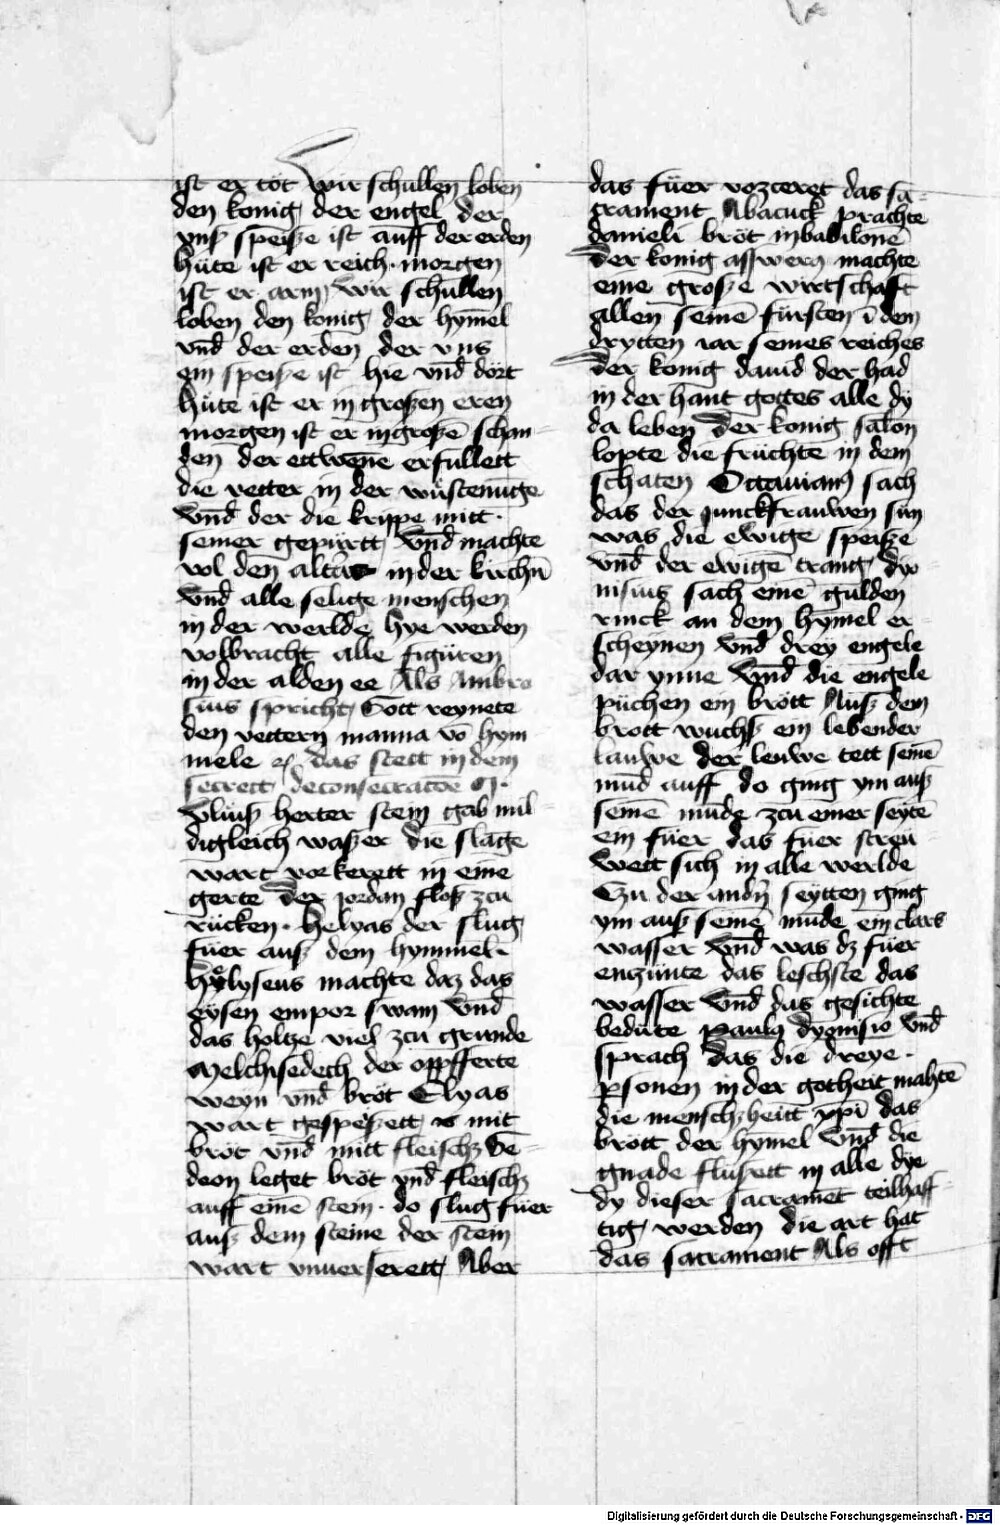 ist er tot Wir schullen loben
den konig der engel der
vnß speisze ist auff der erden
Hüte ist er reich · morgen
ist er arm Wir schullen
loben den konig der hȳmel
vnd̄ der erden der vns
ein speisze ist hie vnd̄ dört
hüte ist er in groszen eren
morgen ist er in groszē schan
den der ettwēne erfullett
die vetter in der wüstenūge
vnd̄ der die krippe mitt ·
seiner gepürtt Vnd̄ machte
vol den altār in der kirchn̄
vnd̄ alle selige menschen
in der werlde hye werden
volbracht alle figüren
in der alden ee Als Ambro
sius spricht Gott reynete
den vettern manna vō hym
mele das stett in dem
secrett de consecratōe
Vluß herter stein gab mil
digleich waszer die slāge
wart vorkerett in eine
gerte Der jordan flosz zcu
rücken · Helyas der slug
füer ausz dem hymmel ·
Helyseus machte daz das
eysen empor swam Vnd̄
das holtze viel zcu grunde
Melchisedech der oppfferte
weyn vnd̄ bröt Elyas
wart gespeiszett mit
bröt vnd̄ mitt fleisch Ge
deon leget bröt vnd̄ fleisch
auff einē stein · do slug füer
ausz dem steine der stein
wart vnuerserett Aber
das füer vozceret das sa
crament Abacuck prachte
danieli bröt in babilonē
Der konig assweru machte
eine grosze wirtschaft
allen seinē fürsten ī dem
drytten iar seines reiches
Der konig dauid der had
in der hant gottes alle dy
da leben Der konig salōn
lopte die früchte in dem
schaten Octauian sach
das der junckfrauwen sün
was die ewige speisze
vnd̄ der ewigē tranck dyo
nisius sach einē gulden
rinck an dem hȳmel er
scheynen vnd̄ drey engele
dar ynne Vnd̄ die engele
püchen ein brött Ausz dem
brott wuchsz ein lebender
lauwe der leuwe tett seinē
mud auff do ging ym ausz
seinē mūde zcu einer seytē
ein füer das füer streu
wett sich in alle werlde
Czu der andn̄ seytten ging
ym ausz seinē mūde ein clars
wasser Vnd̄ was dz füer
enzünte das leschte das
wasser Vnd̄ das gesichte
bedüte paulꝰ dyonisio vnd̄
sprach das die dreye ·
psonen in der gotheit mahtē
die menschheitt xpī das
brott der hȳmel Vnd̄ die
gnade flüsett in alle dye
dy dieser sacramēt teilhaff
tig werden die art hat
das sacrament Als offt
Digitalisierung gefördert durch die Deutsche Forschungsgemeinschaft - DFG